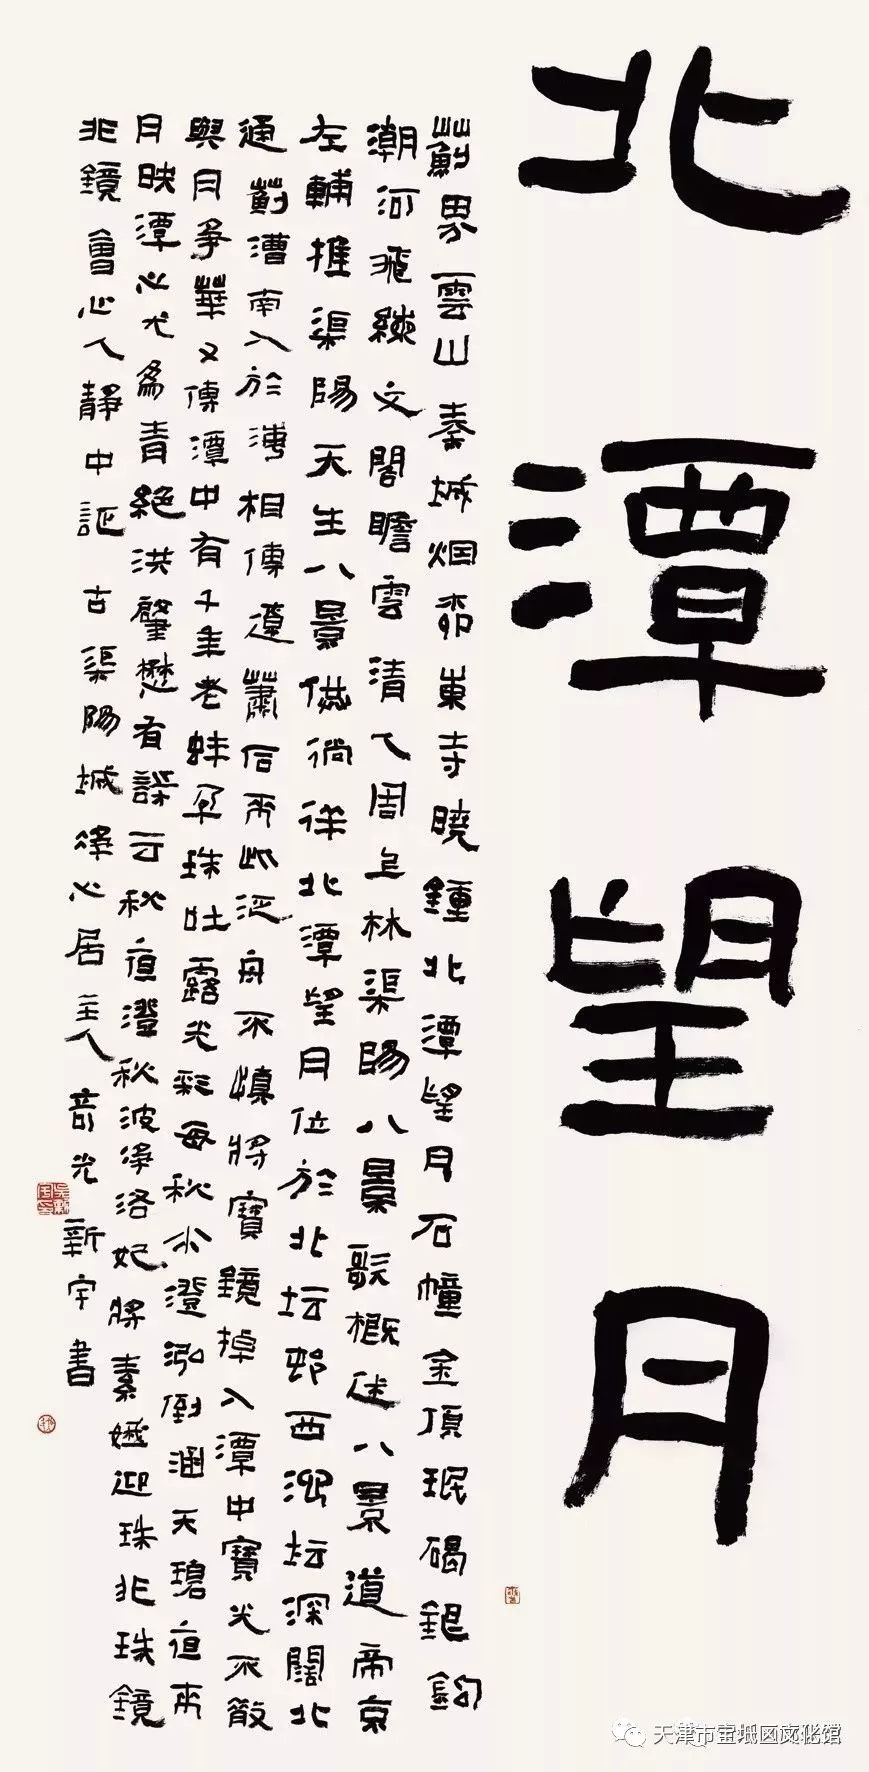 北潭望月
薊界雲山秦城烟東寺曉鍾北潭望月石幢金頂珉碣銀鉤
潮河飛文閣瞻雲清人周林渠陽八景歌概述八景道帝京
左輔推渠陽天生八景供徜徉北潭望月位於北坛邨西坛深闊北
通薊漕南入於相傳遼蕭后來此泛舟不慎將寶鏡掉入潭中寶光不散
與月爭華又傳潭中有千年老蚌孕珠吐露光彩每秋水澄泓倒涵天碧夜來
月映潭心尤為青絕洪肇懋有詠云秋夜澄秋波淨洛妃將素娥迎珠非珠鏡
非鏡會心人靜中証 古渠陽城淨心居主人 新宇書
天津市宝坻区文化馆